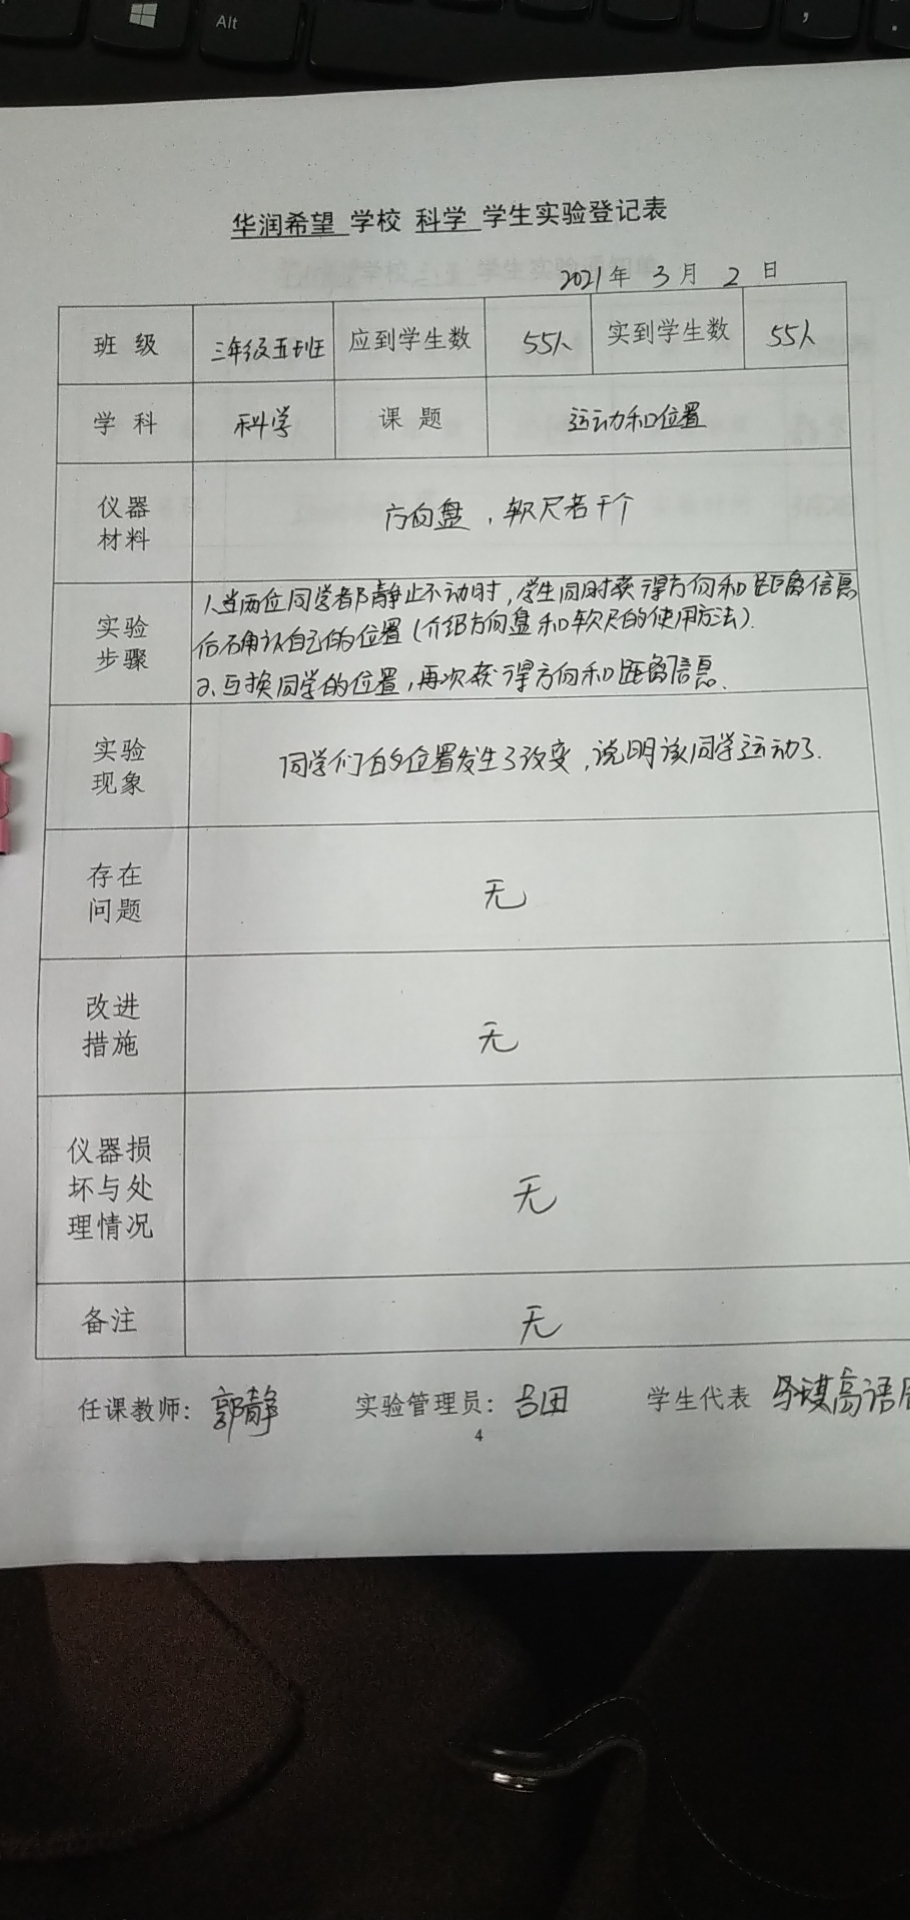 Alt
华润希望 学校 科学 学生实验登记表
2021年 3月 2日
班级 三年级五班 应到学生数 55人 实到学生数 55人
学科 科学 课题 运动和位置
仪器材料 方向盘，软尺若干个
实验步骤 1.当两位同学都静止不动时，学生同时获得方向和距离信息
后确认自己的位置（介绍方向盘和软尺的使用方法）.
2.互换同学的位置，再次获得方向和距离信息.
实验现象 同学们的位置发生了改变，说明该同学运动了.
存在问题 无
改进措施 无
仪器损坏与处理情况 无
备注 无
任课教师：郭静 实验管理员： 学生代表
4